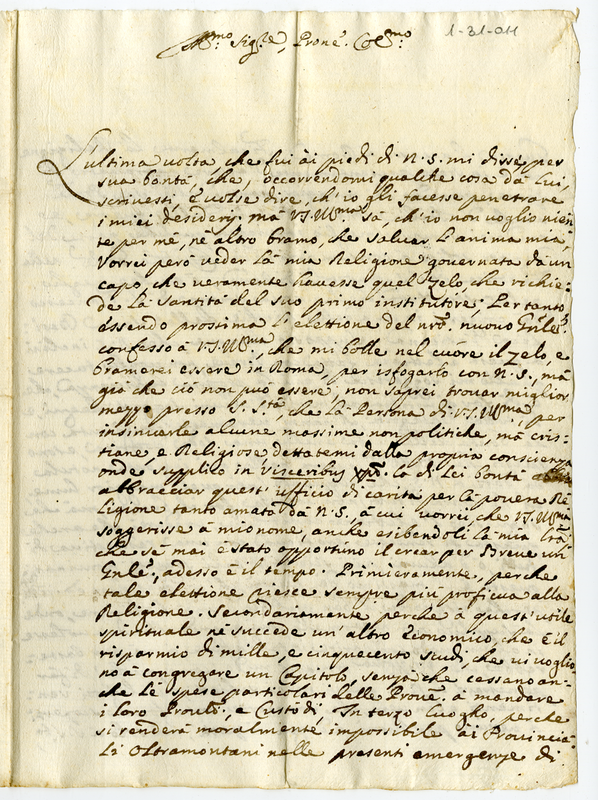 1-31-011
Ill.mo Sig.re, Prone. Col.mo
L'ultima volta che fui ài piedi di N. S. mi disse per
sua bontà, che, occorrendomi qualche cosa dà lui,
scrivesti, è volse dire, ch'io gli facesse penetrare
i miei desiderij. mà V.S.Ill.ma sà, ch'io non voglio nien
te per mè, nè altro bramo, che salvar l'anima mia,
Vorrei però veder là mia Religione governata dà un
capo, che veramente havesse quel zelo, che richie=
de là santità del suo primo institutore; Per tanto
essendo prossima l'elettione del nro. nuovo Gnle.
confesso à V.S.Ill.ma, che mi bolle nel cuore il zelo, e
bramerei essere in Roma, per isfogarlo con N. S., mà
già che ciò non può essere, non saprei trovar miglior
mezzo presso S. S.tà, che là Persona di V.S.Ill.ma, per
insinuarle alcune massime non politiche, mà cris=
tiane, e Religiose dettatemi dalla propria conscienza
onde supplico in visceribus xpi. là di Lei bontà
abbracciar quest'ufficio di carità per là povera Re
ligione tanto amata dà N. S. à cui vorrei, che V.S.Ill.ma
soggerisse à mio nome, anche esibendoli là mia
che sè mai è stato opportuno il crear per Breve un
Gnle., adesso è il tempo. Primieramente, perche
tale elettione riesce sempre più proficua alla
Religione. Secondariamente perche à quest'utile
spirituale nè succede un'altro Economico, che è il
risparmio di mille, e cinquecento scudi, che vi voglio
no à congregare un Capitolo, senza che cessano an=
che lè spese particolari delle Prone. à mandare
i loro Proulì., e Custodi, In terzo luogho, perche
si renderà moralmente impossibile ài Provincia=
li Oltramontani nelle presenti emergenze di